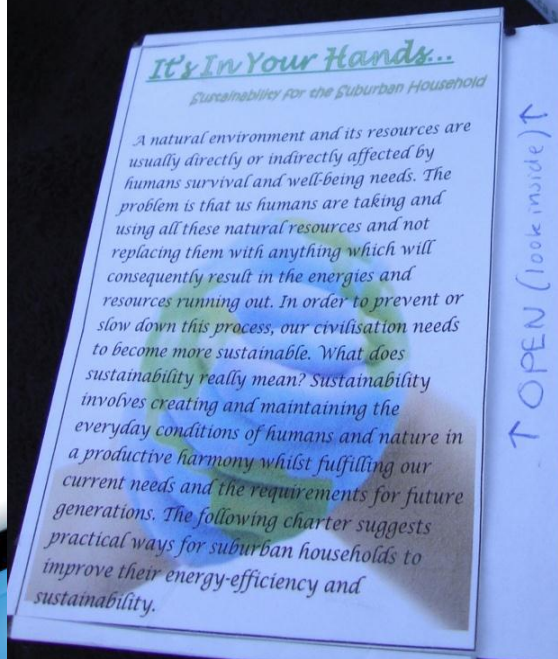 It's In Your Hands...
Sustainability for the Suburban Household
A natural environment and its resources are
usually directly or indirectly affected by
humans survival and well-being needs. The
problem is that us humans are taking and
using all these natural resources and not
replacing them with anything which will
consequently result in the energies and
resources running out. In order to prevent or
slow down this process, our civilisation needs
to become more sustainable. What does
sustainability really mean? Sustainability
involves creating and maintaining the
everyday conditions of humans and nature in
a productive harmony whilst fulfilling our
current needs and the requirements for future
generations. The following charter suggests
practical ways for suburban households to
improve their energy-efficiency and
sustainability.
↑ OPEN (look inside) ↑